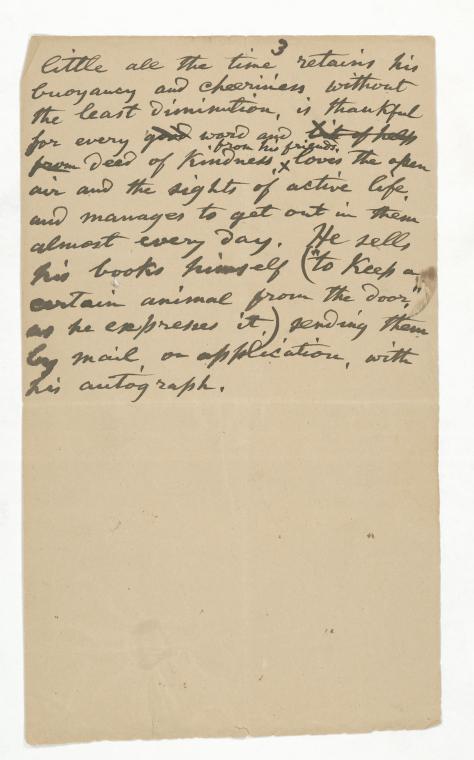 3
little all the time retains his
buoyancy and cheeriness without
the least diminution, is thankful
for every good word and bit of help
from his friends,
from deed of kindness, x loves the open
air and the sights of active life
and manages to get out in them
almost every day. He sells
his books himself ("to keep a
certain animal from the door,"
as he expresses it,) sending them
by mail on application, with
his autograph.